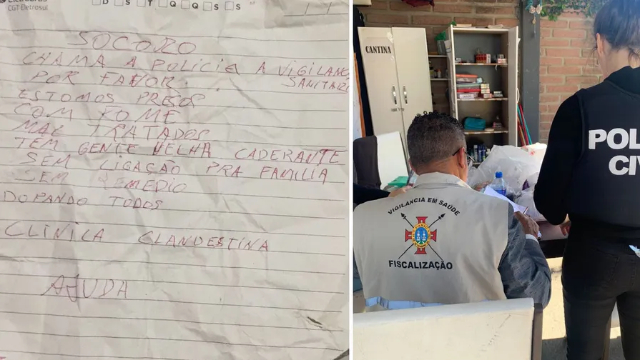 CGT Eletrosul
D S T Q Q S S
SOCORO
CHAMA A POLICIA A VIGILANC
SANITARIA
POR FAVOR.
ESTOMOS PRESOS
COM FOME
MAU TRATADOS
TEM GENTE VELHA CADERANTE
SEM LIGAÇÃO PRA FAMILIA
SEM REMEDIO
DOPANDO TODOS
CLINICA CLANDESTINA
AJUDA
CANTINA
VIGILÂNCIA EM SAÚDE
FISCALIZAÇÃO
POL
CIV